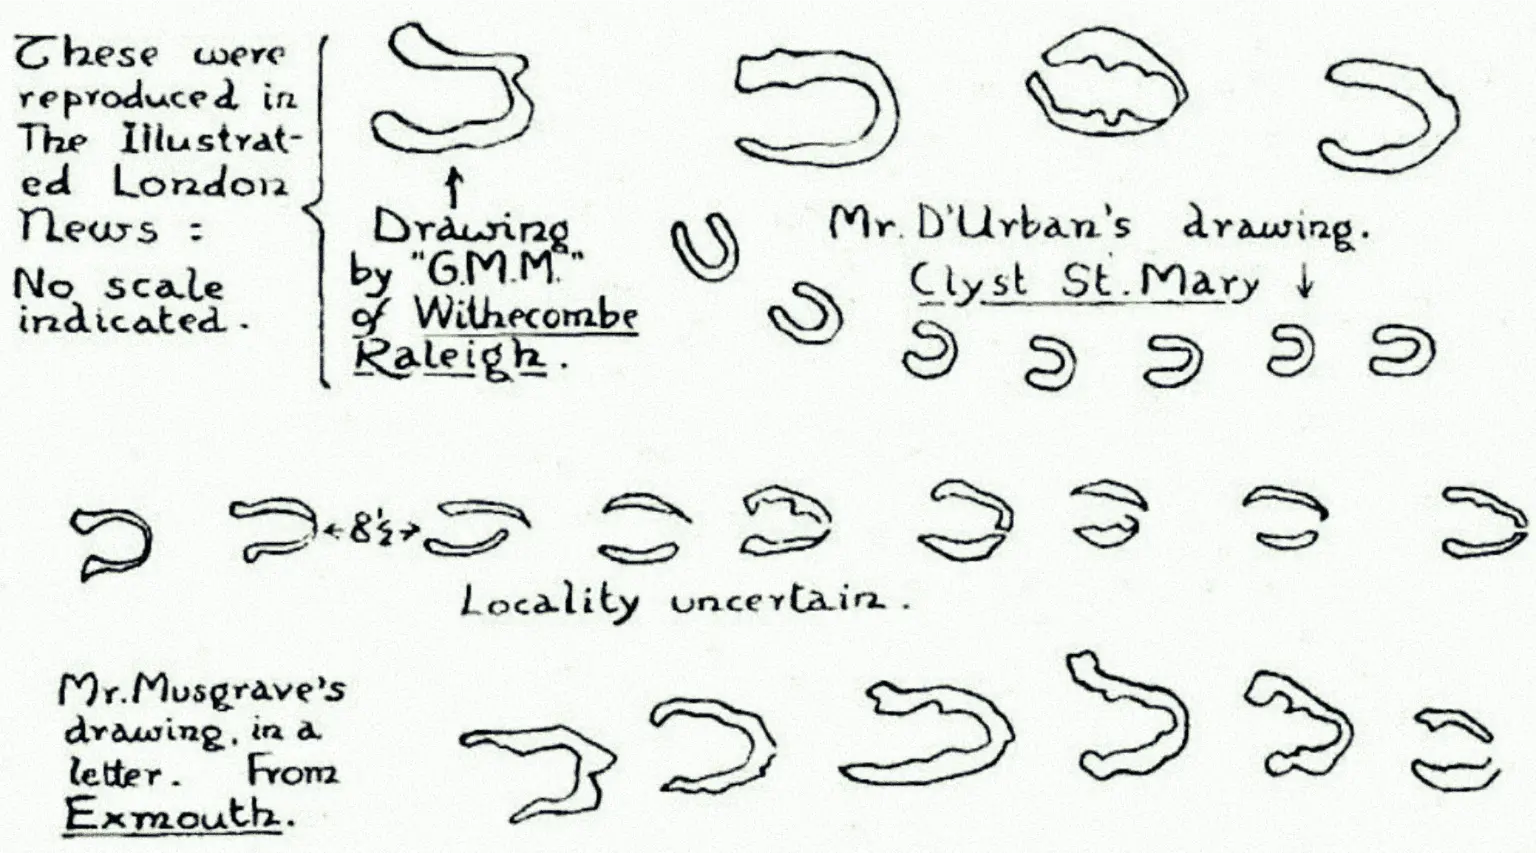 These were
reproduced in
The Illustrat-
ed London
News :
No scale
indicated.
Drawing
by "G.M.M."
of Withecombe
Raleigh.
Mr. D'Urban's drawing.
Clyst St. Mary ↓
←8½→
Locality uncertain.
Mr. Musgrave's
drawing, in a
letter. From
Exmouth.